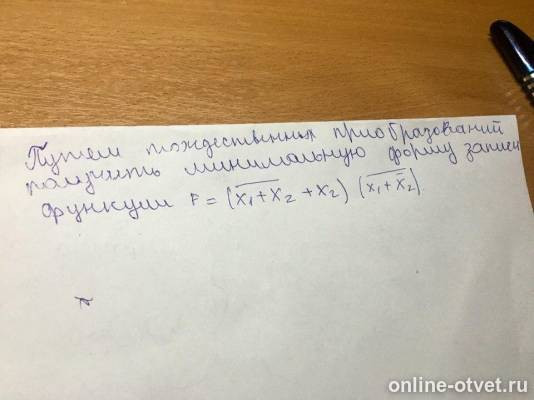 Путем тождественных приобразований
получить минимальную форму записи
функции F = (x̅₁̅ ̅+̅ ̅x̅₂ + x₂) (x̅₁̅ ̅+̅ ̅x̅̅₂)
online-otvet.ru